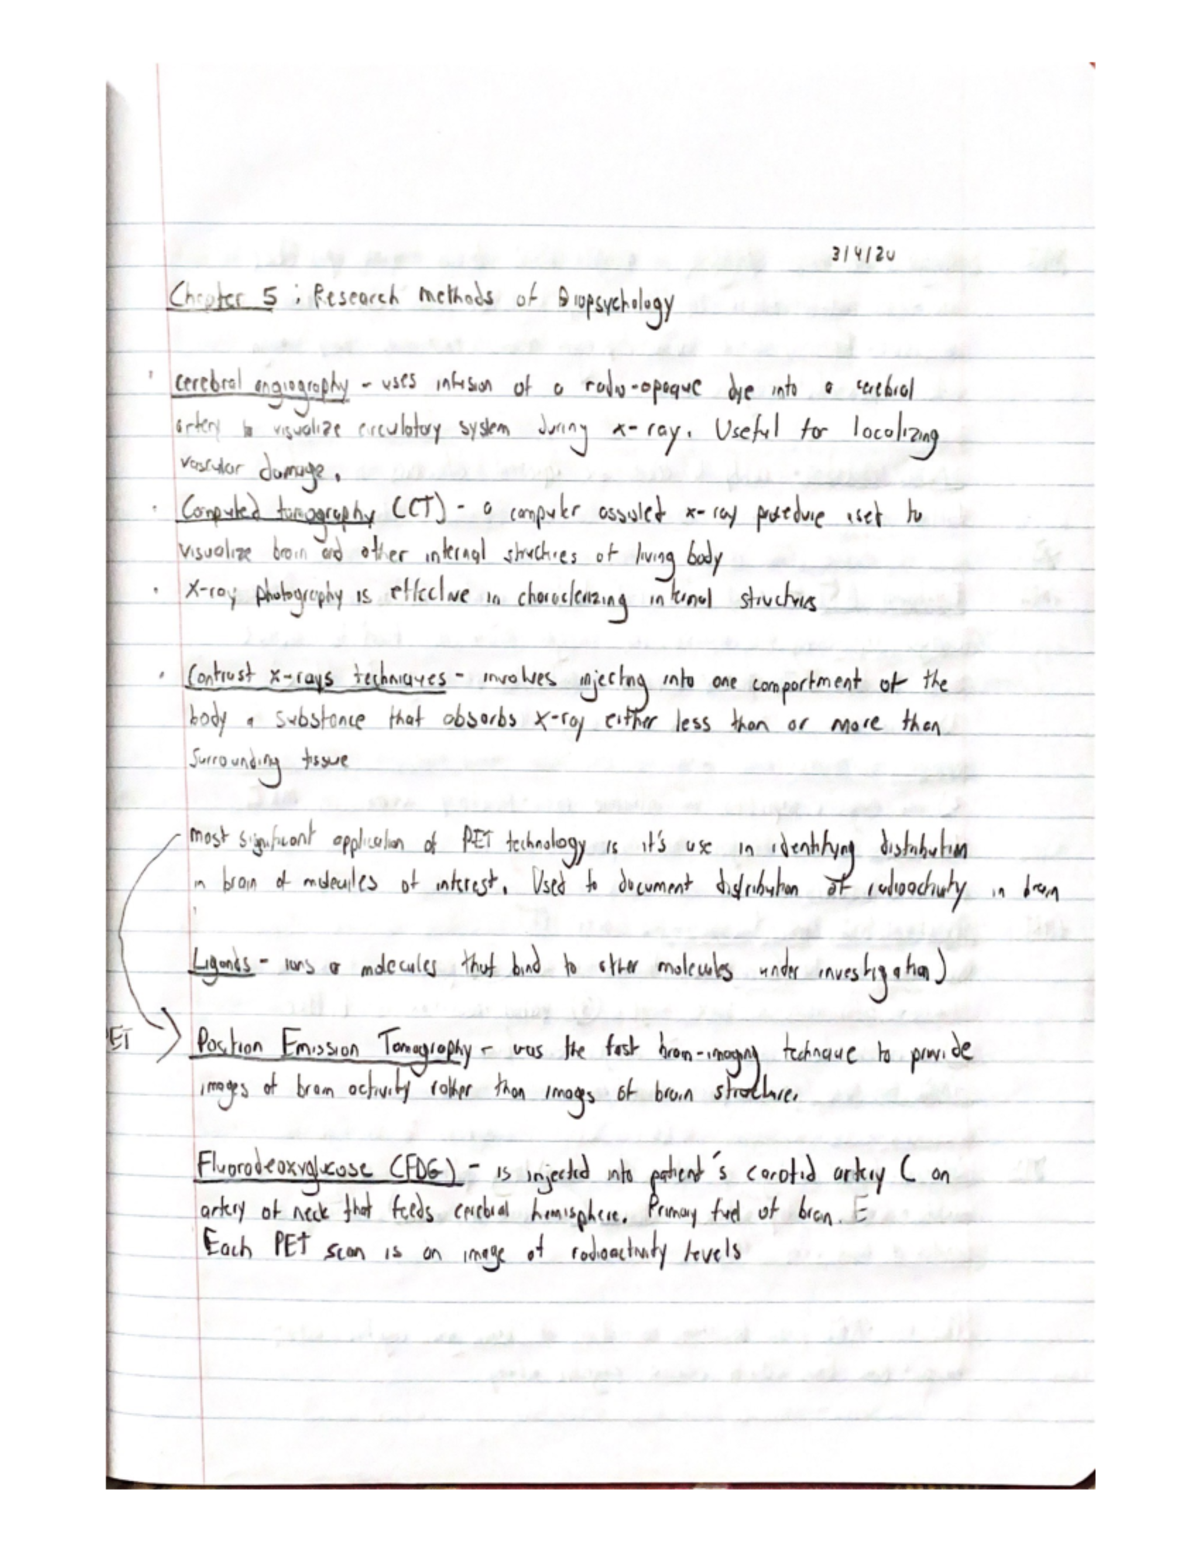 3/4/20
Chapter 5 : Research methods of Biopsychology
cerebral angiography - uses infusion of a radio-opaque dye into a cerebral
artery to visualize circulatory system during x-ray. Useful for localizing
vascular damage.
Computed tomography (CT) - a computer assisted x-ray procedure used to
visualize brain and other internal structures of living body
X-ray photography is effective in characterizing internal structures
Contrast x-rays techniques - involves injecting into one compartment of the
body a substance that absorbs x-ray either less than or more than
surrounding tissue
most significant application of PET technology is it's use in identifying distribution
in brain of molecules of interest. Used to document distribution of radioactivity in brain
Ligands - ions or molecules that bind to other molecules under investigation)
ET
Position Emission Tomography - was the first brain-imaging technique to provide
images of brain activity rather than images of brain structure.
Fluorodeoxyglucose (FDG) - is injected into patient's carotid artery ( an
artery of neck that feeds cerebral hemisphere. Primary fuel of brain. E
Each PET scan is an image of radioactivity levels